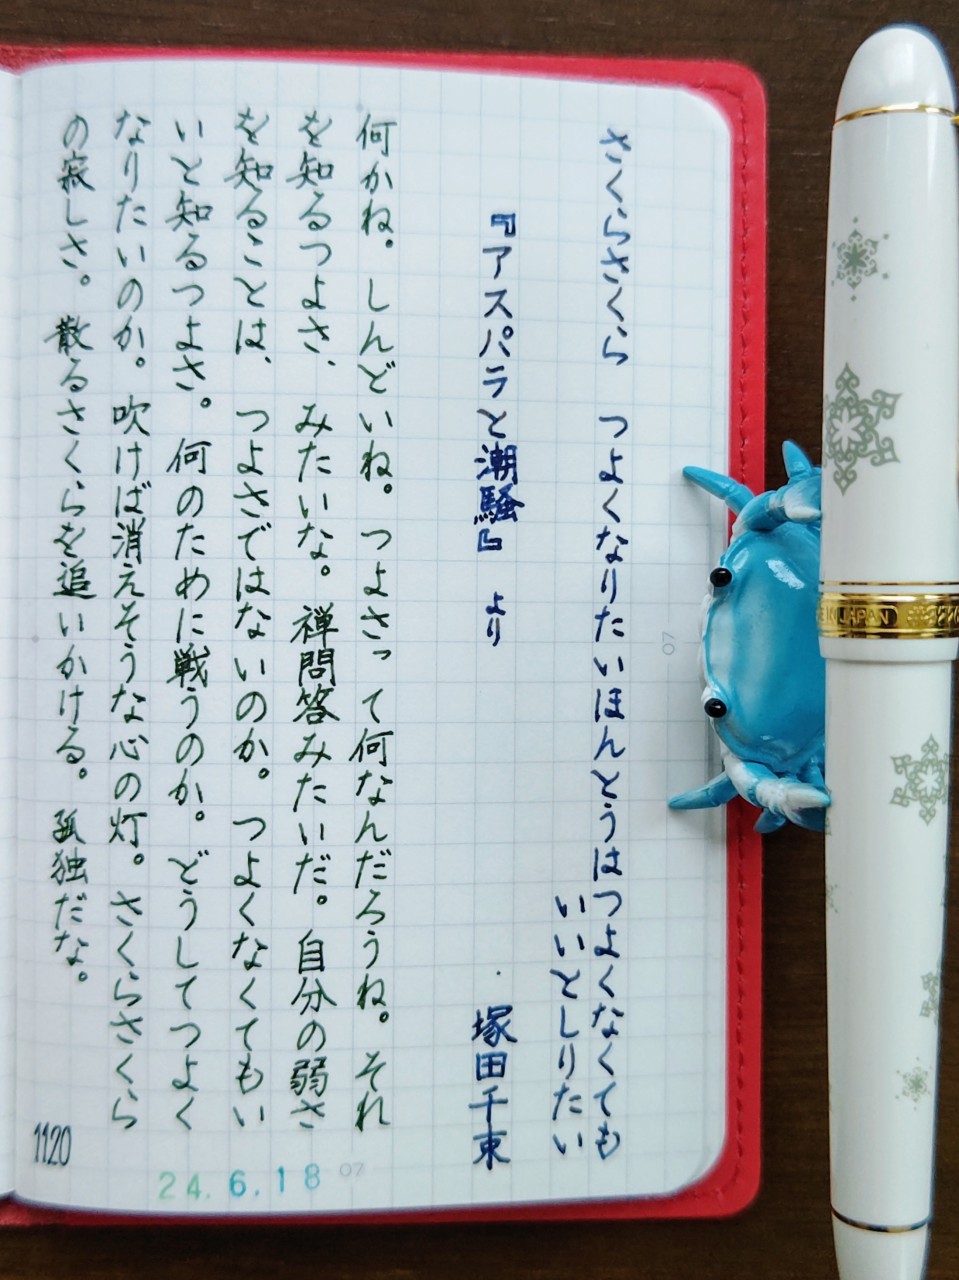 さくらさくら　つよくなりたいほんとうはつよくなくても
いいとしりたい
『アスパラと潮騒』　より　塚田千束
何かね。しんどいね。つよさって何なんだろうね。それ
を知るつよさ、みたいな。禅問答みたいだ。自分の弱さ
を知ることは、つよさではないのか。つよくなくてもい
いと知るつよさ。何のために戦うのか。どうしてつよく
なりたいのか。吹けば消えそうな心の灯。さくらさくら
の寂しさ。散るさくらを追いかける。孤独だな。
1120
24.6.18
07
07
IN JAPAN